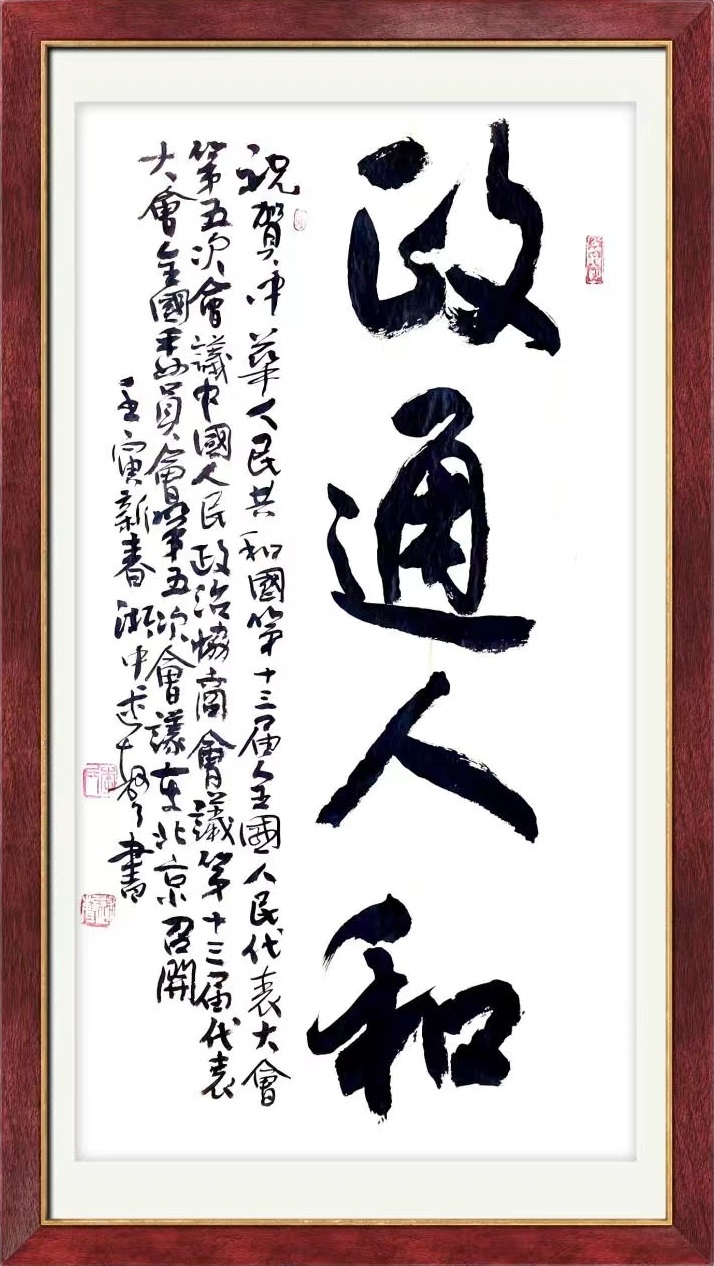 政通人和
祝賀中華人民共和國第十三届全國人民代表大會
第五次會議中國人民政治協商會議第十三届代表
大會全國委員會第五次會議在北京召開
壬寅新春浙中述書